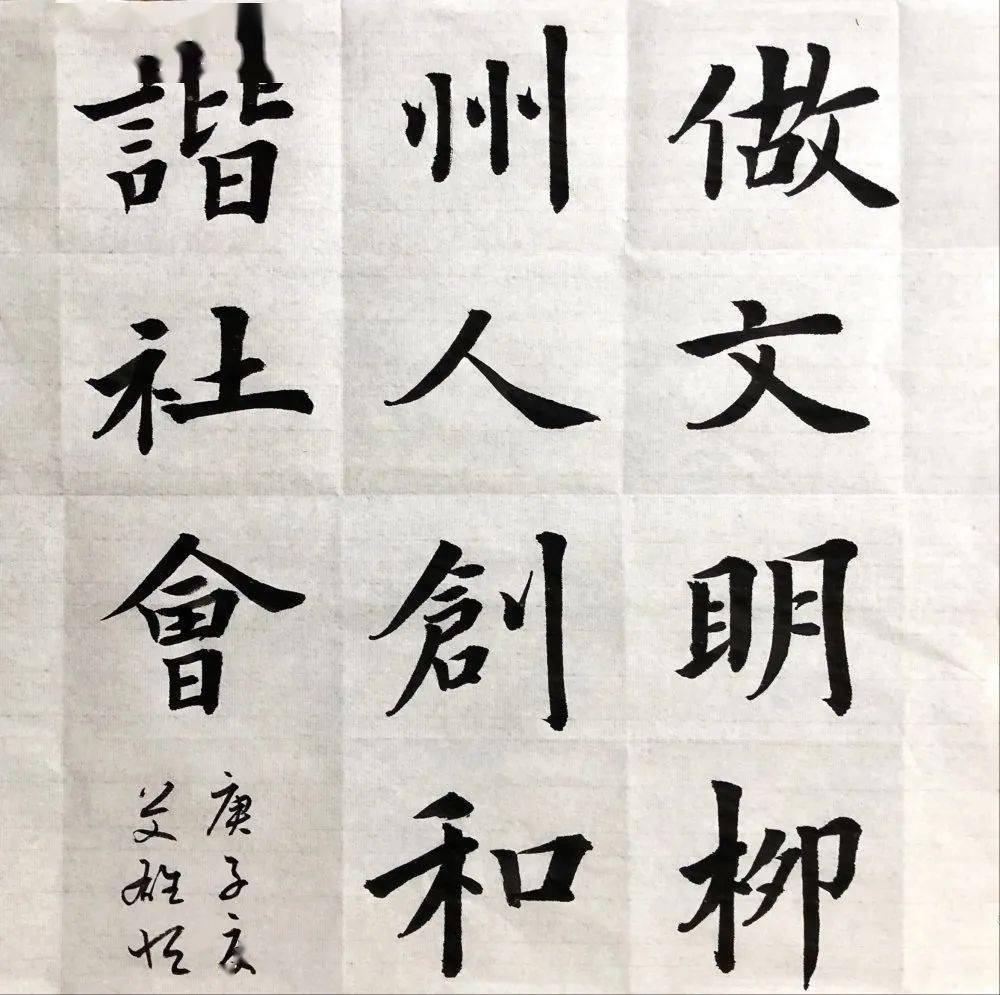 做文明柳
州人創和
諧社會
庚子夏